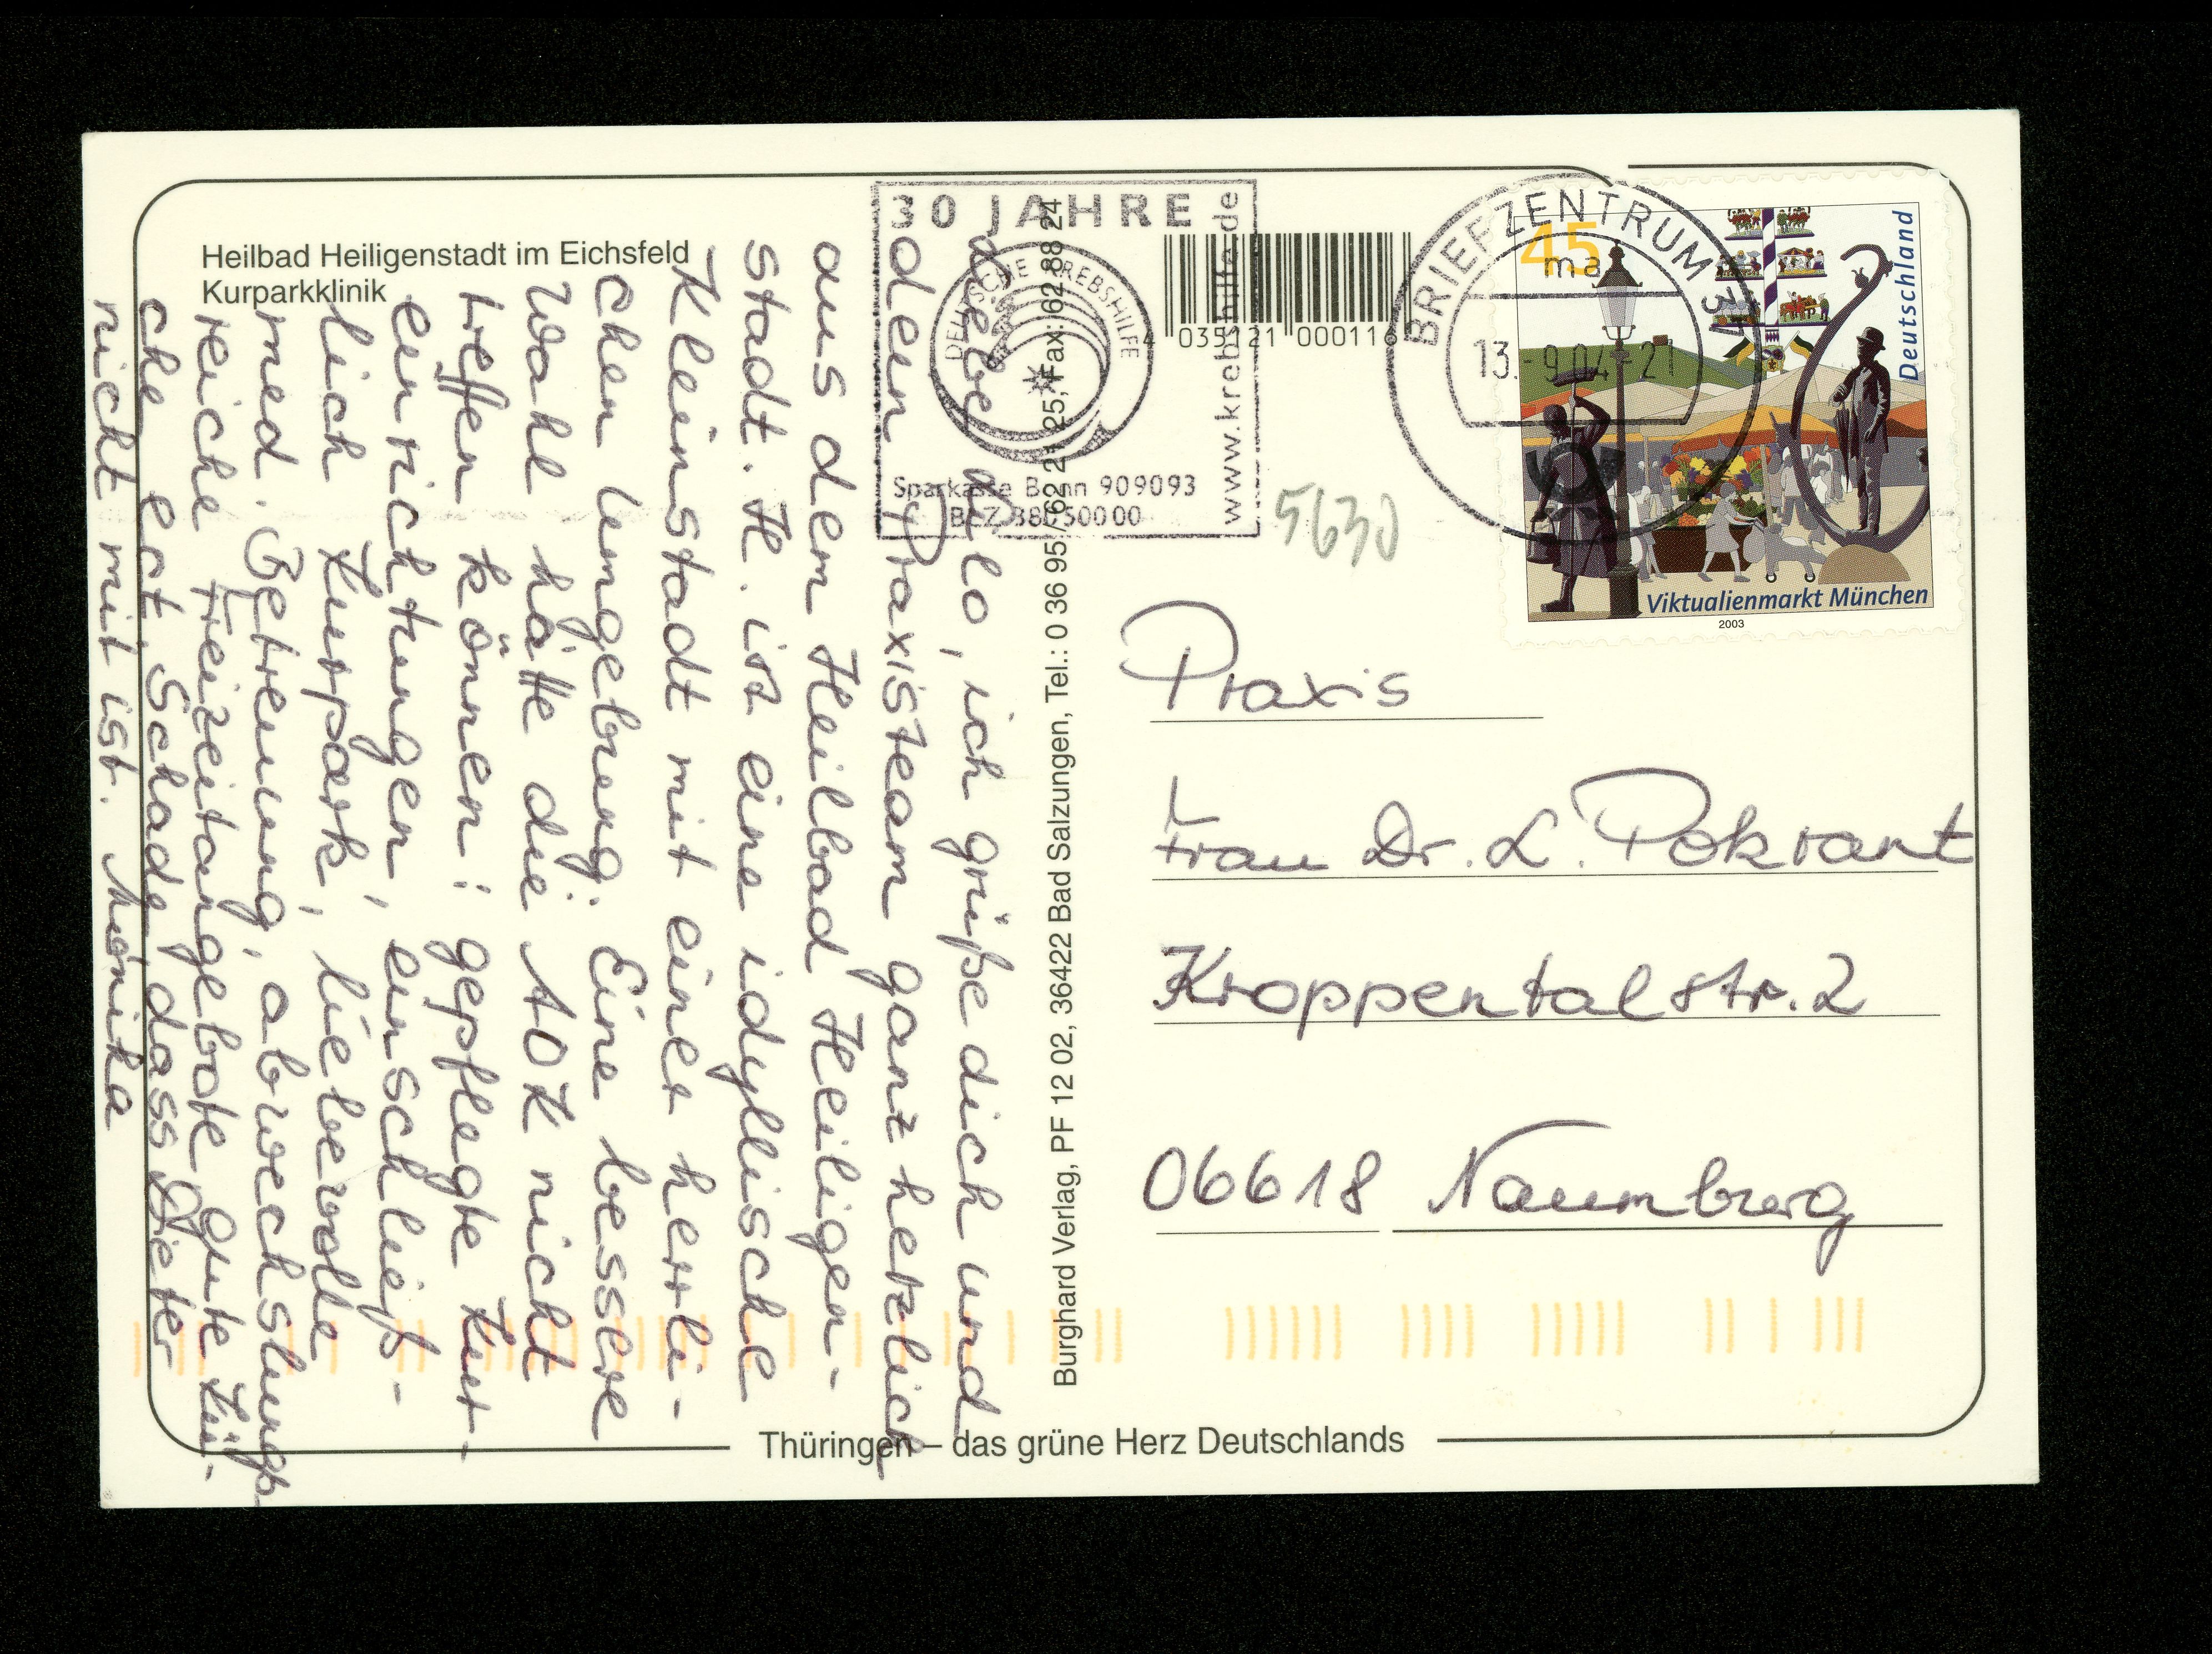 Heilbad Heiligenstadt im Eichsfeld
Kurparkklinik
30 JAHRE
DEUTSCHE KREBSHILFE
Sparkasse Bonn 909093
BLZ 380 500 00
www.krebshilfe.de
4 035121 000116
BRIEFZENTRUM 37
ma
13.-9.04-21
45
Deutschland
Viktualienmarkt München
2003
5630
ich grüße dich und
dein Praxisteam ganz herzlich
aus dem Heilbad Heiligen-
stadt. H. ist eine idyllische
Kleinstadt mit einer herrli-
chen Umgebung. Eine bessere
Wahl hätte die AOK nicht
treffen können: gepflegte Kur-
einrichtungen, einschließ-
lich Kurpark, liebevolle
med. Betreuung, abwechslungs-
reiche Freizeitangebote, gute Kü-
che ect. Schade, dass Dieter
nicht mit ist. Monika
Burghard Verlag, PF 12 02, 36422 Bad Salzungen, Tel.: 0 36 95/62 21 25, Fax: 62 88 24
Praxis
Frau Dr. L. Pokrant
Kroppentalstr. 2
06618 Naumburg
Thüringen – das grüne Herz Deutschlands